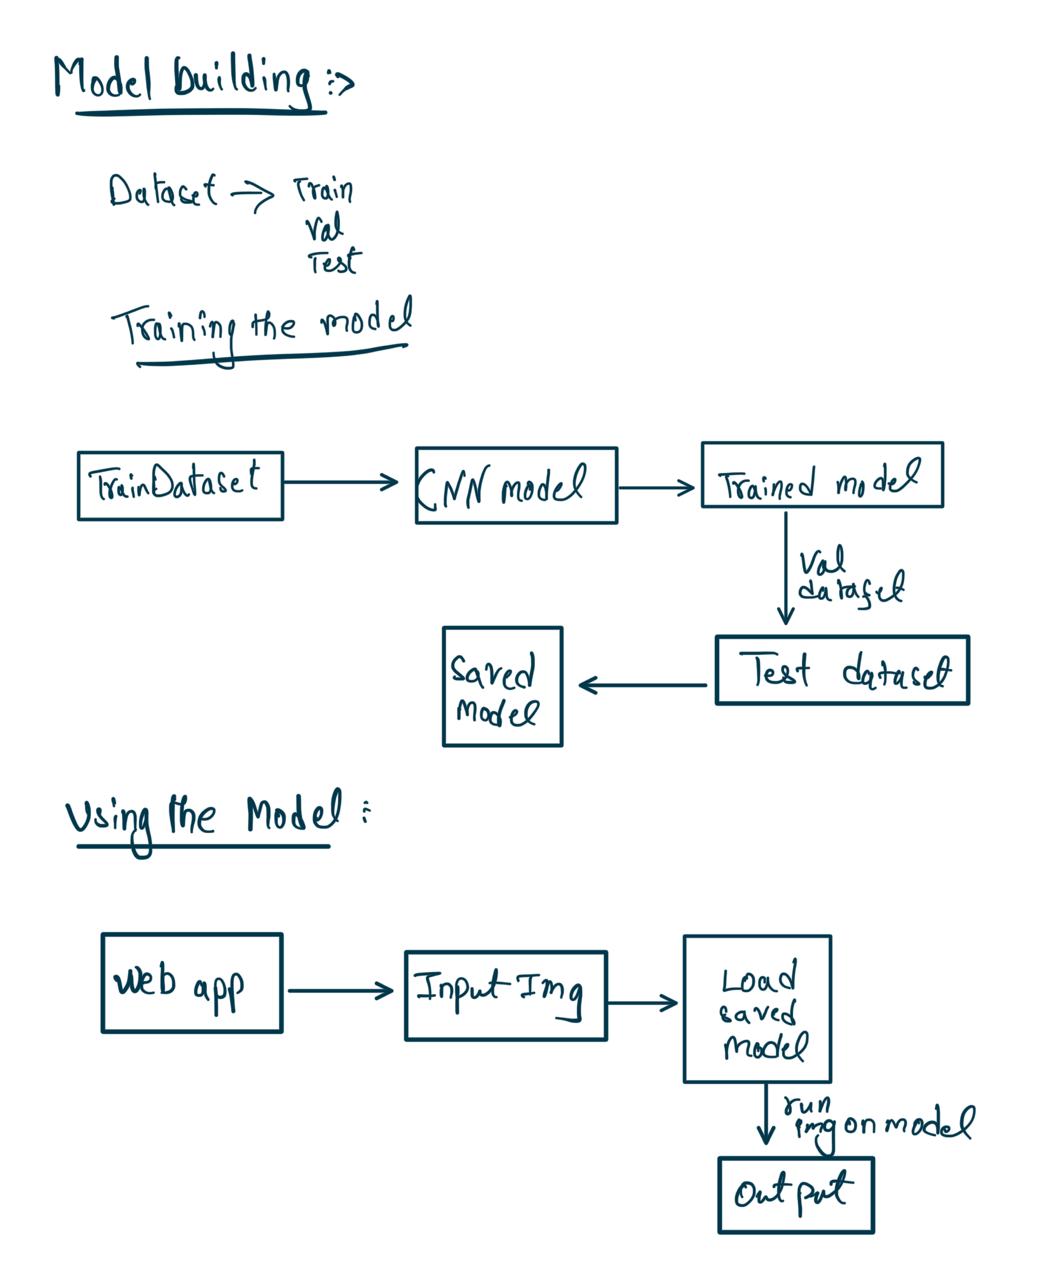 Model building :->
Dataset → Train
Val
Test
Training the model
TrainDataset
CNN model
Trained model
Val
dataset
Test dataset
Saved
Model
Using the Model :
Web app
Input Img
Load
saved
model
run
img on model
Output